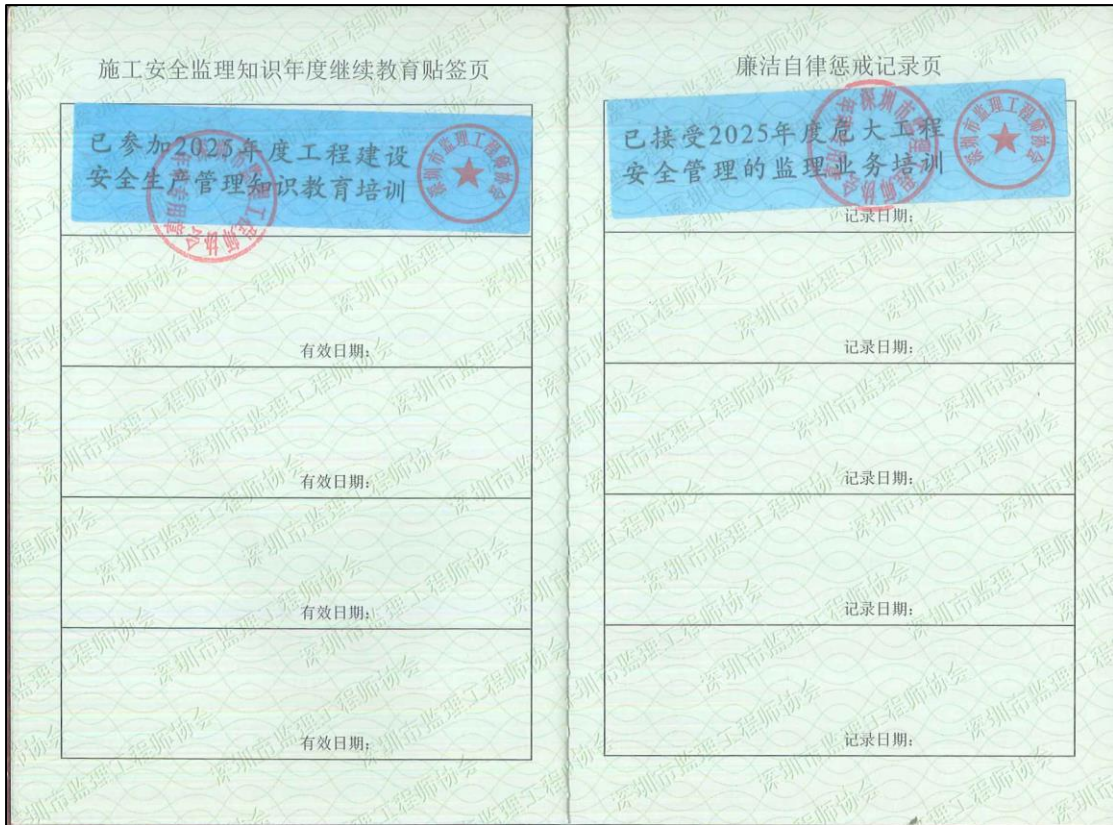 施工安全监理知识年度继续教育贴签页
已参加2025年度工程建设
安全生产管理知识教育培训
深圳市监理工程师协会
有效日期:
有效日期:
有效日期:
有效日期:
廉洁自律惩戒记录页
已接受2025年度危大工程
安全管理的监理业务培训
深圳市监理工程师协会
记录日期:
记录日期:
记录日期:
记录日期:
记录日期:
深圳市监理工程师协会